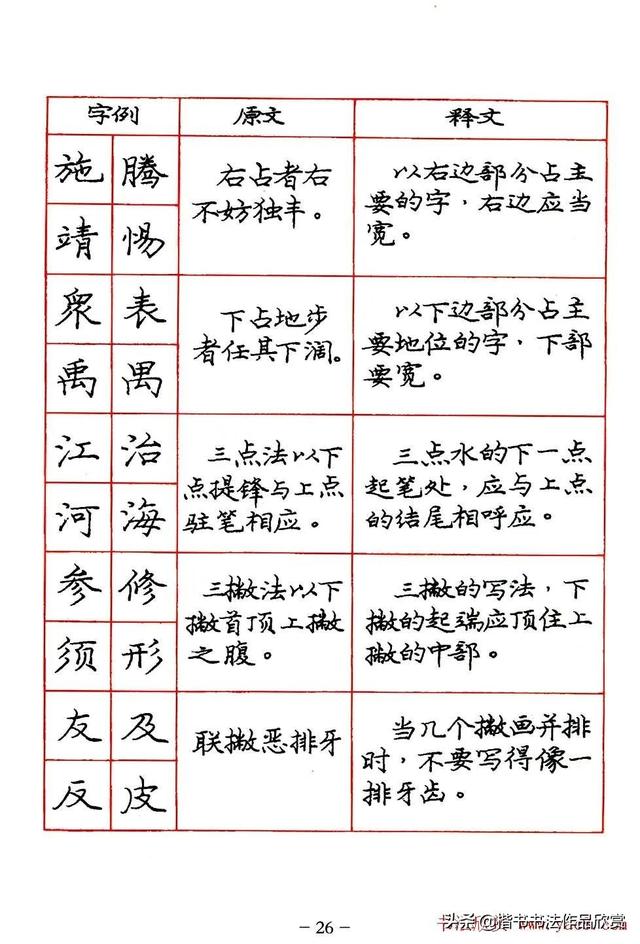 字例 原文 释文
施 腾
靖 惕
右占者右
不妨独丰。
以右边部分占主
要的字，右边应当
宽。
衆 表
禹 禺
下占地步
者任其下阔。
以下边部分占主
要地位的字，下部
要宽。
江 治
河 海
三点法以下
点提锋与上点
驻笔相应。
三点水的下一点
起笔处，应与上点
的结尾相呼应。
参 修
须 形
三撇法以下
撇首顶上撇
之腹。
三撇的写法，下
撇的起端应顶住上
撇的中部。
友 及
反 皮
联撇恶排牙
当几个撇画并排
时，不要写得像一
排牙齿。
- 26 -
头条@楷书书法作品欣赏